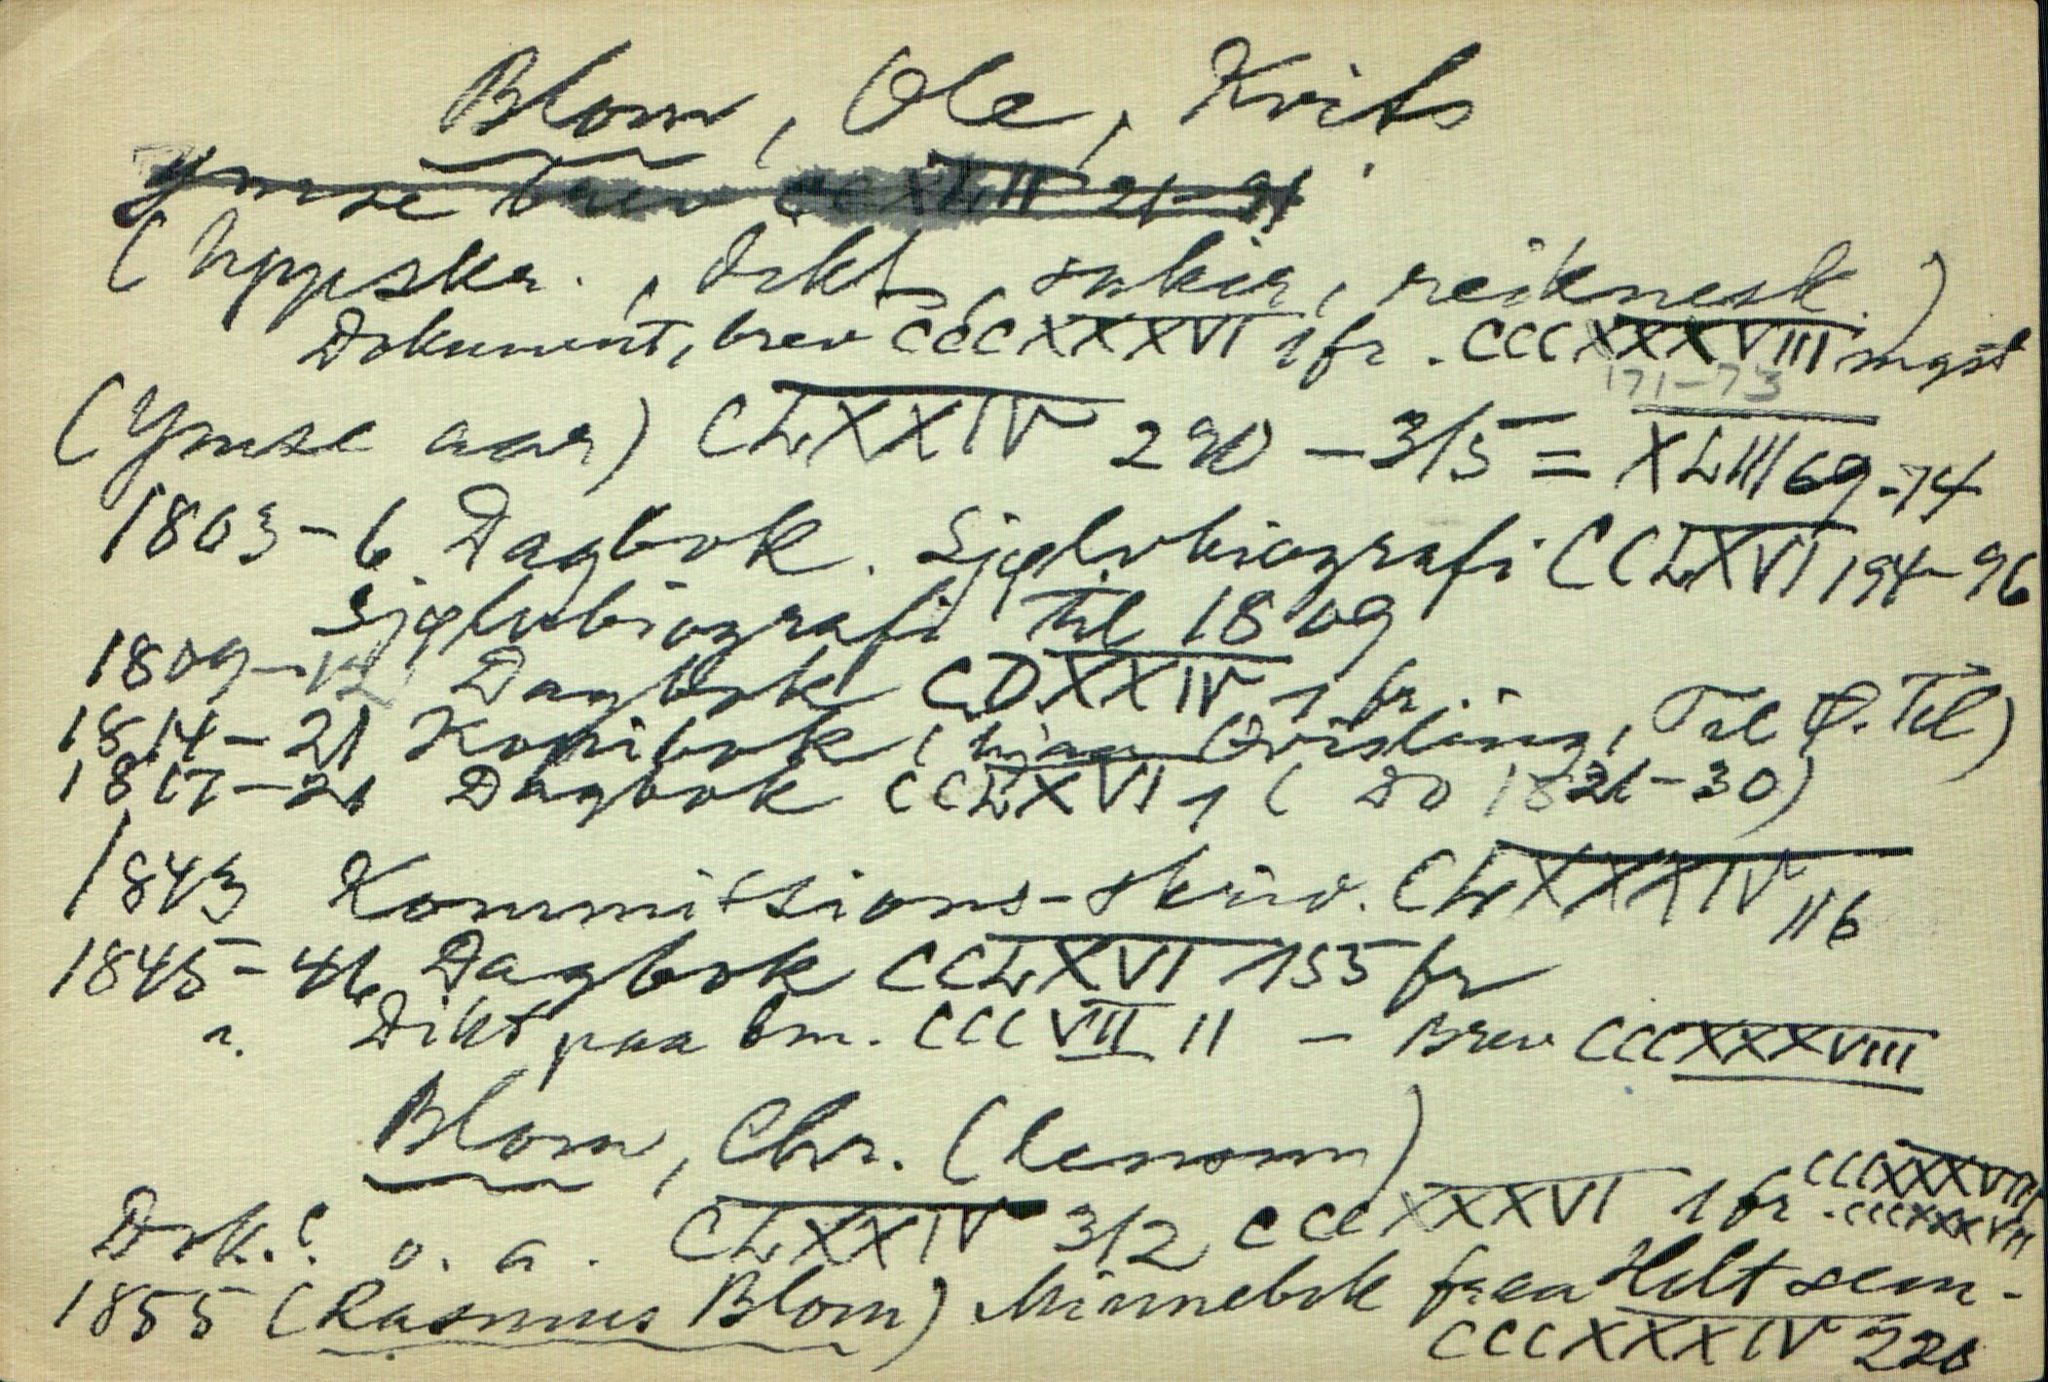 Blom, Ole, Kvits
Ymse brev CCXLIII 21-31
(Uppskr., dikt, sakir, reiknesk.)
Dokument, brev CCCXXXVI 1 fr. CCCXXXVIII mgst
171-73
(Ymse aar) CLXXIV 290-315 = XLIII 69-74
1803-6 Dagbok. Sjølvbiografi CCLXVI 194-96
Sjølvbiografi til 1809
1809-12 Dagbok CDXXIV 1 fr.
1814-21 Kopibok (hjaa Qvisling, Tel Ø. Tel)
1817-21 Dagbok CCLXVI 1 (Do 1821-30)
1843 Kommissions-skriv. CLXXXIV 116
1845-46 Dagbok CCLXVI 155 fr
Dikt paa bm. CCCVII 11 - Brev CCCXXXVIII
Blom, Chr. (lensm)
Dok. o. a. CLXXIV 312 CCCXXXVI 1 fr CCCXXXVIII
CCCXXXVII
1855 (Rasmus Blom) Minnebok fraa Holt sem-
CCCXXXIV 220